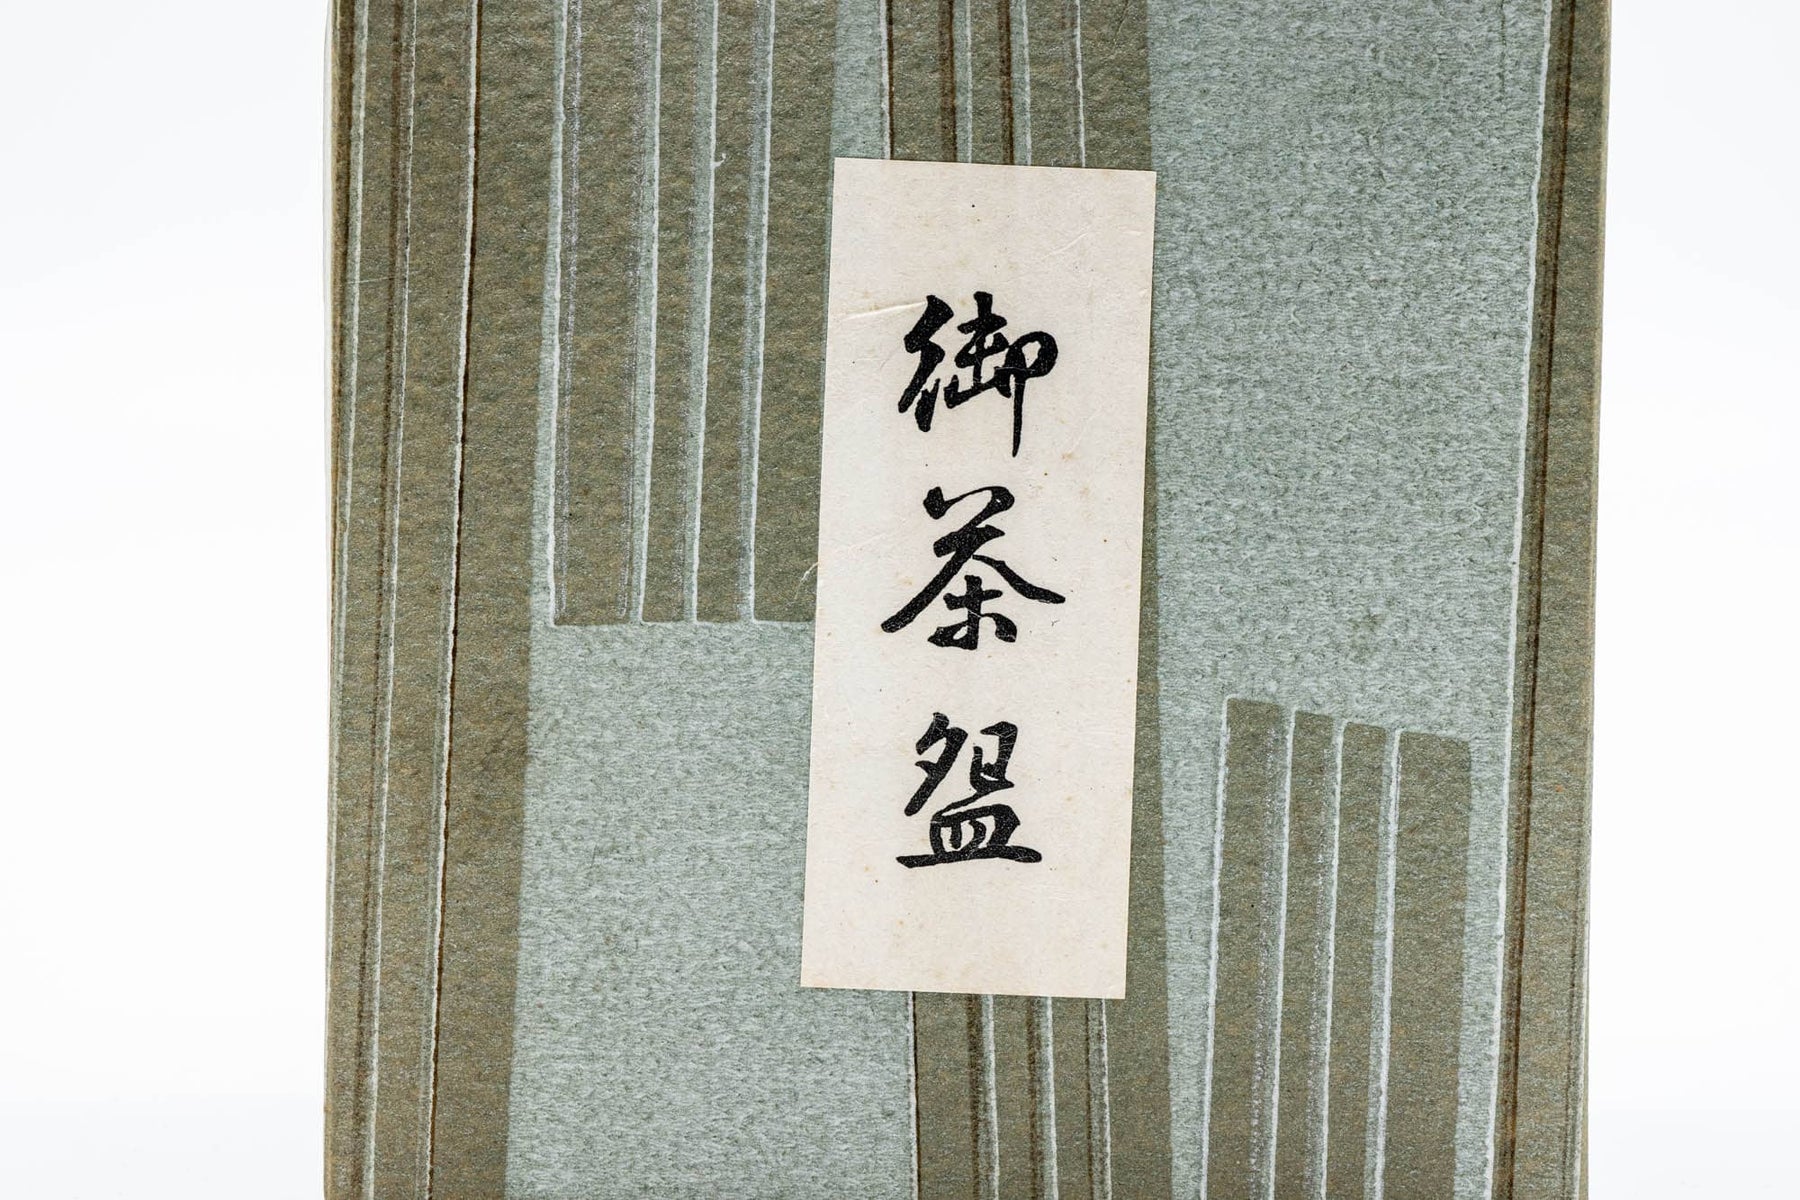 御茶盌